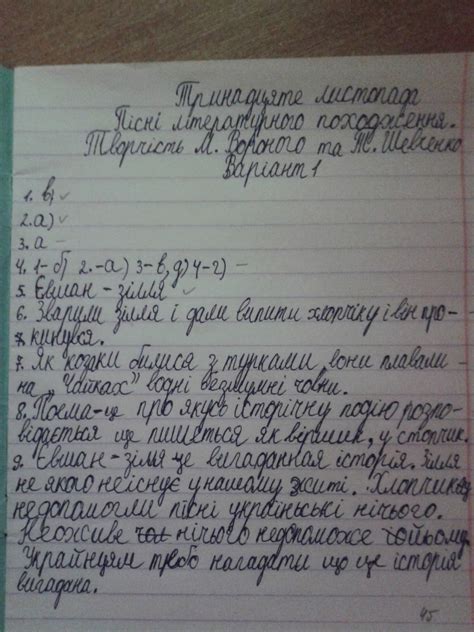 Тринадцяте листопада
Пісні літературного походження.
Творчість М. Вороного та Т. Шевченко
Варіант 1
1. в) ✓
2. а) ✓
3. а –
4. 1-б) 2.-а) 3-в, д) 4-г) –
5. Євшан-зілля ✓
6. Зварили зілля і дали випити хлопчіку і він про-
кинувся.
7. Як козаки билися з турками, вони плавали –
на „Чайках" водні безшумні човни.
8. Поема-це про якусь історічну подію розпо-
відається ще пишеться як віршик, у стопчик.
9. Євшан-зіля це вигаданная історія. Зілля
не якого неіснує унашому житі. Хлопчик
недопомогли пісні українські нічього.
Неоживе нічього недопоможе йому.
Українцям требо нагадати що це історія
вигадана.
45